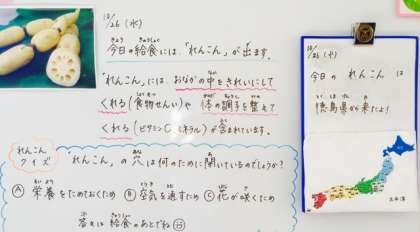 12/26 (水)
今日の給食には、「れんこん」が出ます。
"れんこん"には、おなかの中をきれいにして
くれる(食物せんい)や 体の調子を整えて
くれる(ビタミンC、ミネラル)が含まれています。
れんこん
クイズ
れんこん。の穴は何のために開いているのでしょうか?
Ⓐ 栄養をためておくため Ⓑ 空気を通すため Ⓒ 花が咲くため
答えは 給食のあとでね
12/26 (水)
今日の れんこん は
徳島県から来たよ!